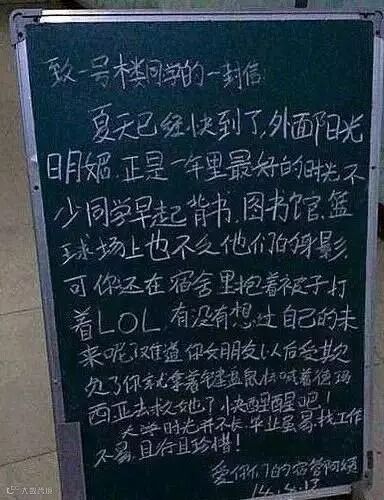 致一号楼同学的一封信:
夏天已经快到了,外面阳光
明媚.正是一年里最好的时光.不
少同学早起背书.图书馆.篮
球场上也不乏他们的身影.
可你还在宿舍里抱着被子打
着LOL.有没有想过自己的未
来呢?难道你女朋友以后受欺
负了你就拿着键盘鼠标喊着德玛
西亚去救她了.快醒醒吧!
大学时光并不长.毕业虽易.找工作
不易.且行且珍惜!
爱你们的宿管阿姨